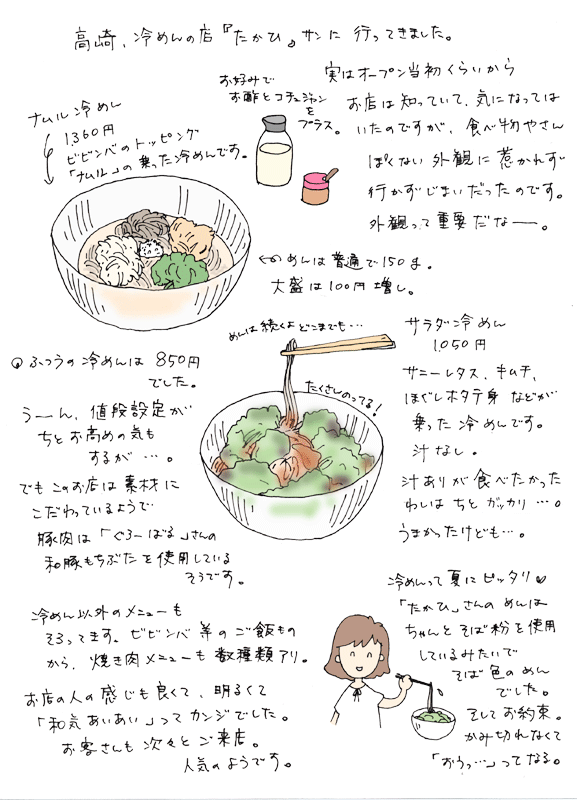 高崎、冷めんの店『たかひ』サンに行ってきました。
実はオープン当初くらいから
お店は知っていて、気になっては
いたのですが、食べ物やさん
ぽくない外観に惹かれず
行かずじまいだったのです。
外観って重要だなー。
お好みで
お酢とコチュジャン
を
プラス。
ナムル冷めん
1360円
ビビンバのトッピング
「ナムル」の乗った冷めんです。
めんは普通で150g。
大盛は100円増し。
めんは続くよどこまでも…
たくさんのってる!
サラダ冷めん
1,050円
サニーレタス、キムチ、
ほぐしホタテ身などが
乗った冷めんです。
汁なし。
汁ありが食べたかった
わしはちとガッカリ…。
うまかったけども…。
ふつうの冷めんは850円
でした。
うーん、値段設定が
ちとお高めの気も
するが…。
でもこのお店は素材に
こだわっているようで
豚肉は「ぐろーばる」さんの
和豚もちぶたを使用している
そうです。
冷めん以外のメニューも
そろってます。ビビンバ等のご飯もの
から、焼き肉メニューも数種類アリ。
お店の人の感じも良くて、明るくて
「和気あいあい」ってカンジでした。
お客さんも次々とご来店。
人気のようです。
冷めんって夏にピッタリ♥
「たかひ」さんのめんは
ちゃんとそば粉を使用
しているみたいで
そば色のめん
でした。
そしてお約束。
かみ切れなくて
「おうっ…」ってなる。